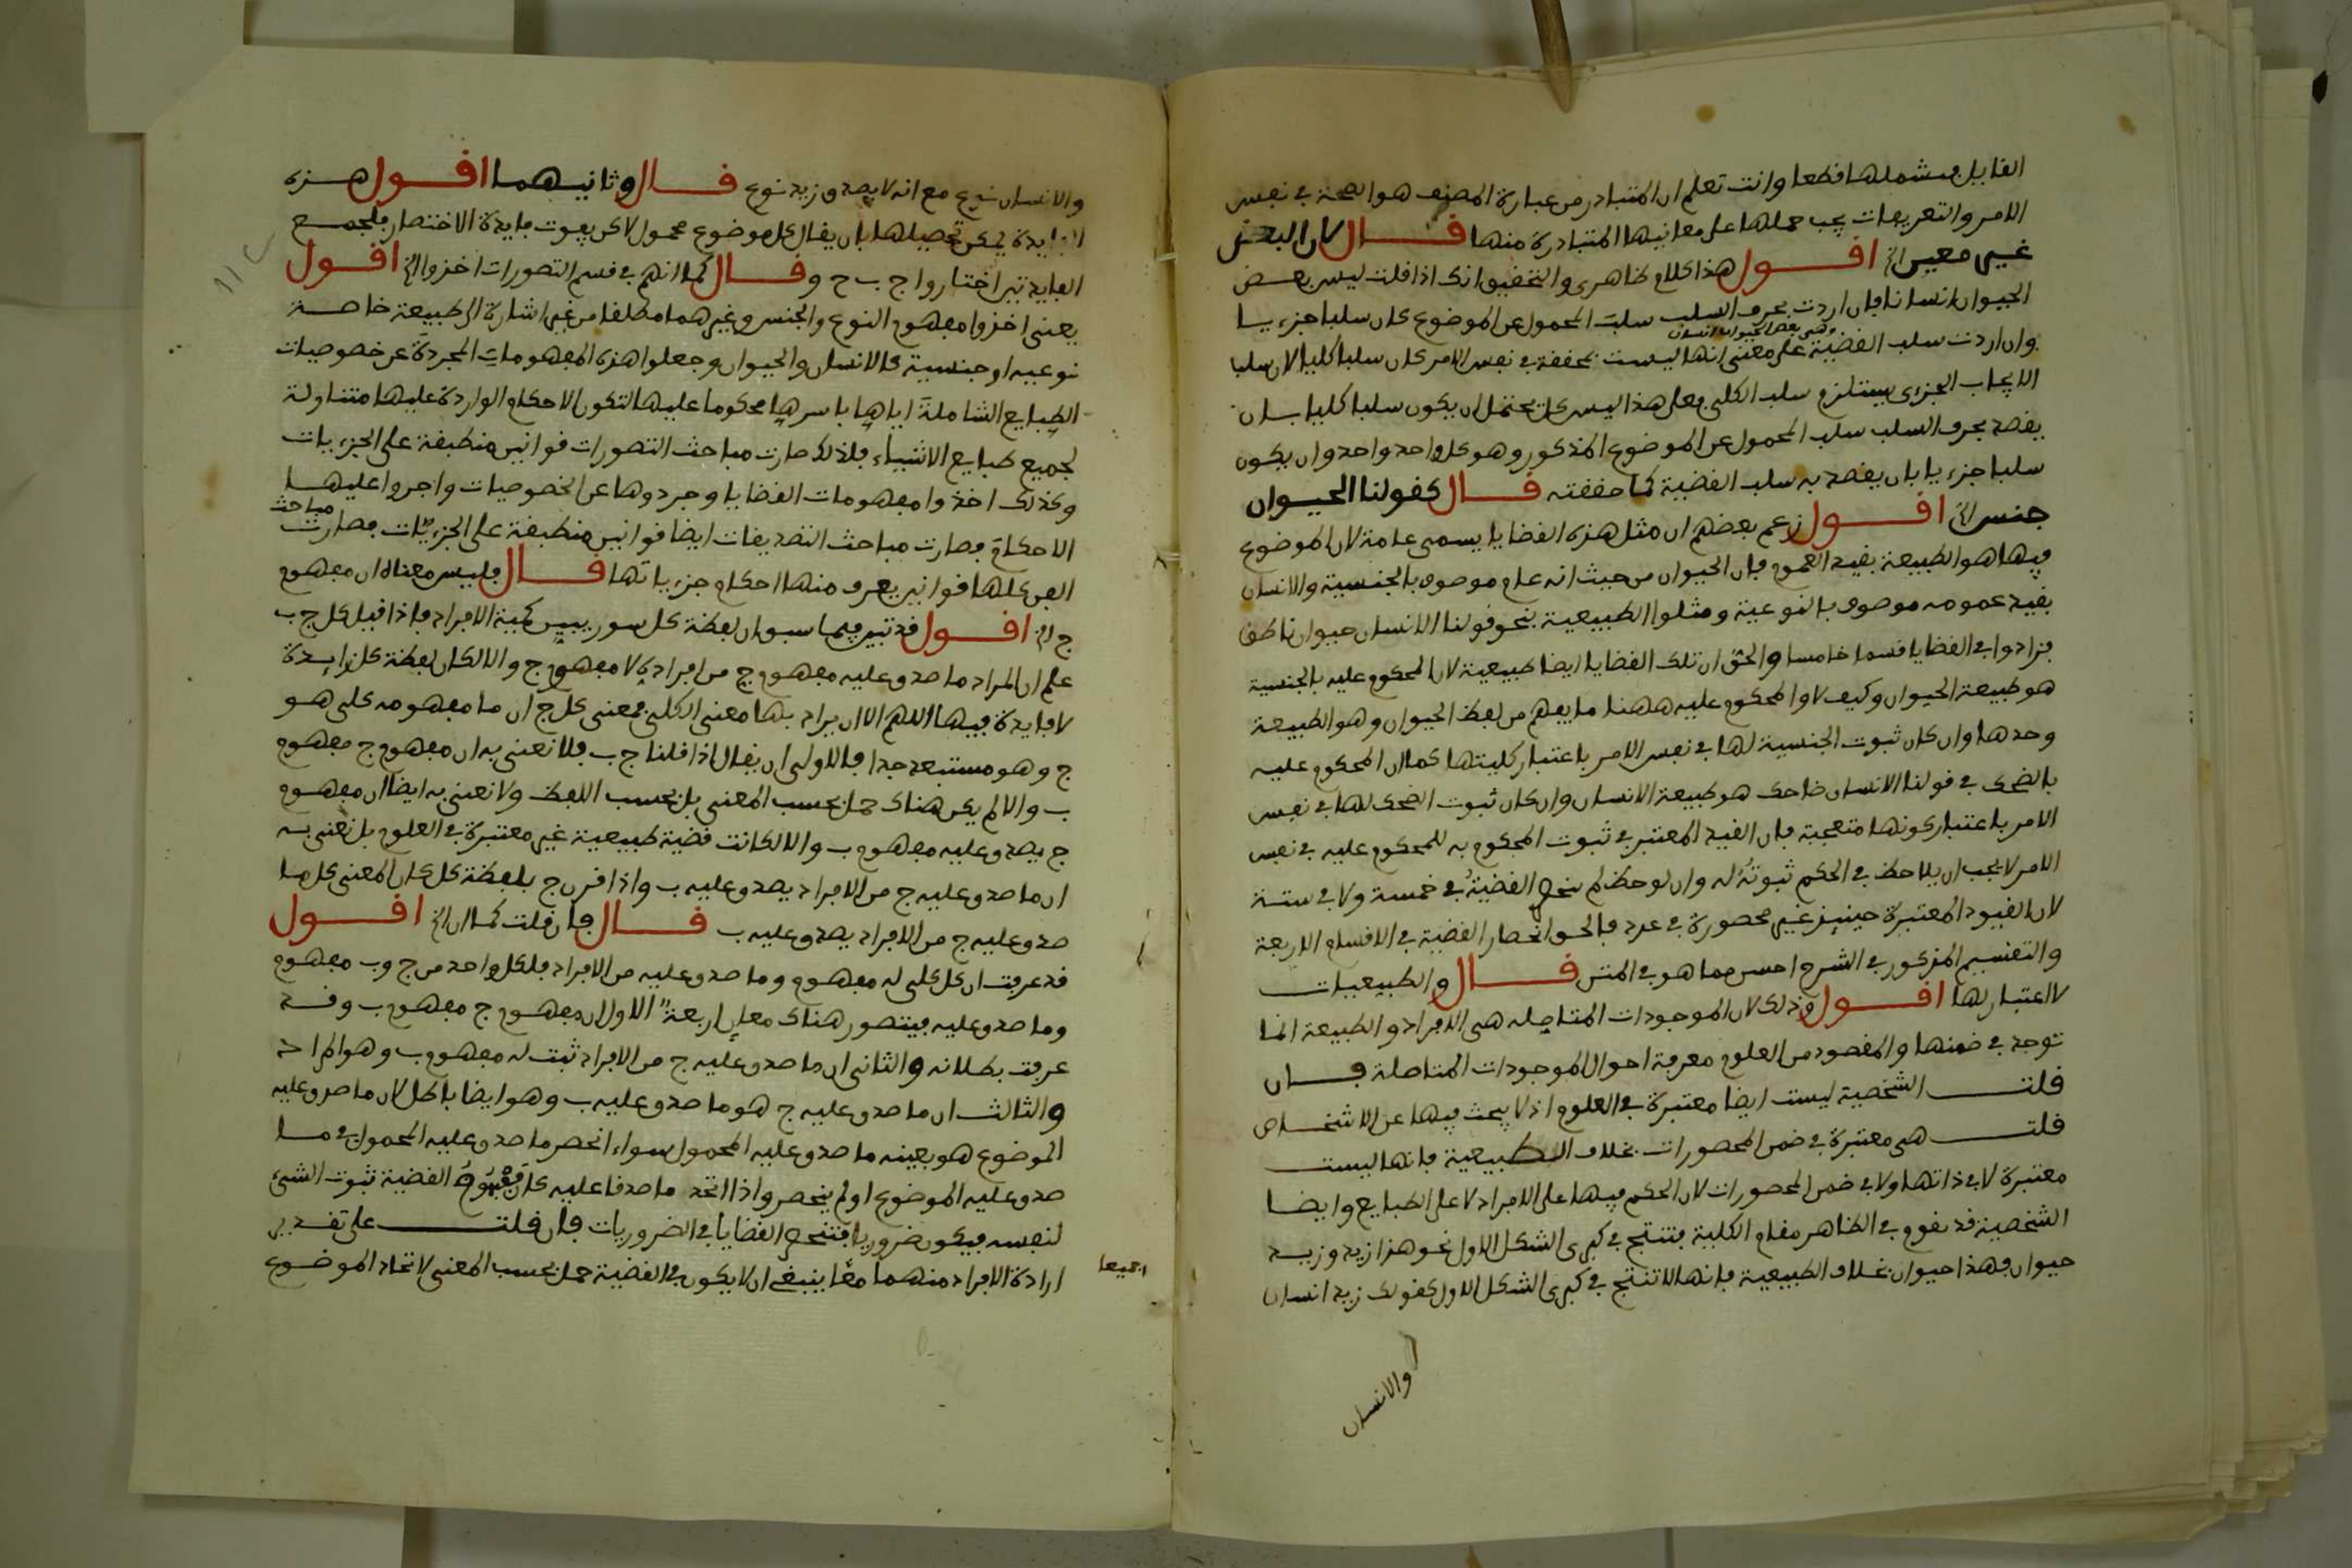 القابل فيشملها قطعا وانت تعلم ان المتبادر من عبارة المصنف هو الصحة في نفس
الامر والتعريفات يجب حملها على معانيها المتبادرة منها قال لان البعض
غير معين الخ اقول هذا كلام ظاهري والتحقيق انك اذا قلت ليس بعض
الحيوان انسانا فان اردت بحرف السلب سلب المحمول عن الموضوع كان سلبا جزءيا
وهي بعض الحيوان انسان
وان اردت سلب القضية على معنى انها ليست محققة في نفس الامر كان سلبا كليا لان سلب
الايجاب الجزءى يستلزم سلب الكلى فعلى هذا ليس كل يحتمل ان يكون سلبا كليا بان
يقصد بحرف السلب سلب المحمول عن الموضوع المذكور وهو كل واحد واحد وان يكون
سلبا جزءيا بان يقصد به سلب القضية كما حققته قال كقولنا الحيوان
جنس الخ اقول زعم بعضهم ان مثل هذه القضايا يسمى عامة لان الموضوع
فيها هو الطبيعة بقيد العموم فان الحيوان من حيث انه عام موصوف بالجنسية والانسان
بقيد عمومه موصوف بالنوعية ومثلوا الطبيعية بنحو قولنا الانسان حيوان ناطق
فزادوا في القضايا قسما خامسا والحق ان تلك القضايا ايضا طبيعية لان المحكوم عليه بالجنسية
هو طبيعة الحيوان وكيف لا والمحكوم عليه ههنا ما يفهم من لفظ الحيوان وهو الطبيعة
وحدها وان كان ثبوت الجنسية لها في نفس الامر باعتبار كليتها كما ان المحكوم عليه
بالضحك في قولنا الانسان ضاحك هو طبيعة الانسان وان كان ثبوت الضحك لها في نفس
الامر باعتبار كونها متعجبة فان القيد المعتبر في ثبوت المحكوم به للمحكوم عليه في نفس
الامر لا يجب ان يلاحظ في الحكم ثبوته له وان لوحظ لم تنحصر القضية في خمسة ولا في ستة
لان القيود المعتبرة حينيذ غير محصورة في عدد فالحق انحصار القضية في الاقسام الاربعة
والتقسيم المذكور في الشرح احسن مما هو في المتن قال والطبيعيات
لا اعتبار لها اقول وذلك لان الموجودات المتاصله هي الافراد والطبيعة انما
توجد في ضمنها والمقصود من العلوم معرفة احوال الموجودات المتاصلة فان
قلت الشخصية ليست ايضا معتبرة في العلوم اذ لا يبحث فيها عن الاشخاص
قلت هي معتبرة في ضمن المحصورات بخلاف الطبيعية فانها ليست
معتبرة لا في ذاتها ولا في ضمن المحصورات لان الحكم فيها على الافراد لا على الطبايع وايضا
الشخصية قد تقوم في الظاهر مقام الكلية فتنتج في كبرى الشكل الاول نحو هذا زيد وزيد
حيوان فهذا حيوان بخلاف الطبيعية فانها لا تنتج في كبرى الشكل الاول كقولك زيد انسان
والانسان
والانسان نوع مع انه لا يصدق زيد نوع قال وثانيهما اقول هذه
الفايدة يمكن تحصيلها بان يقال كل موضوع محمول لاكن يفوت فايدة الاختصار فلجمع
الفايدتين اختاروا ج ب ح وقال كما انهم في قسم التصورات اخذوا الخ اقول
يعني اخذوا مفهوم النوع والجنس وغيرهما مطلقا من غير اشارة الى طبيعة خاصة
نوعيه او جنسية كالانسان والحيوان وجعلوا هذه المفهومات المجردة عن خصوصيات
الطبايع الشاملة اياها باسرها محكوما عليها لتكون الاحكام الواردة عليها متناولة
لجميع طبايع الاشياء فلذلك صارت مباحث التصورات قوانين منطبقة على الجزءيات
وكذلك اخذوا مفهومات القضايا وجردوها عن الخصوصيات واجروا عليها
الاحكام فصارت مباحث التصديقات ايضا قوانين منطبقة على الجزءيات فصارت مباحث
الفن كلها قوانين يعرف منها احكام جزءياتها قال فليس معناه ان مفهوم
ج الخ اقول قد تبين فيما سبق ان لفظة كل سور يبين كمية الافراد فاذا قيل كل ج ب
علم ان المراد ما صدق عليه مفهوم ج من افراده لا مفهوم ج والا لكان لفظة كل زايدة
لا فايدة فيها اللهم الا ان يراد بها معنى الكلى فمعنى كل ج ان ما مفهومه كلى هو
ج وهو مستبعد جدا فالاولى ان يقال اذا قلنا ج ب فلا نعني به ان مفهوم ج مفهوم
ب والا لم يكن هناك حمل بحسب المعنى بل بحسب اللفظ ولا نعني به ايضا ان مفهوم
ج يصدق عليه مفهوم ب والا لكانت قضية طبيعية غير معتبرة في العلوم بل نعني به
ان ما صدق عليه ج من الافراد يصدق عليه ب واذا قرن ج بلفظة كل كان المعنى كل ما
صدق عليه ج من الافراد يصدق عليه ب قال فان قلت كما ان الخ اقول
قد عرفت ان كل كلى له مفهوم وما صدق عليه من الافراد فلكل واحد من ج وب مفهوم
وما صدق عليه فيتصور هناك معان اربعة الاول ان مفهوم ج مفهوم ب وقد
عرفت بطلانه والثاني ان ما صدق عليه ج من الافراد ثبت له مفهوم ب وهو المراد
والثالث ان ما صدق عليه ج هو ما صدق عليه ب وهو ايضا باطل لان ما صدق عليه
الموضوع هو بعينه ما صدق عليه المحمول سواء انحصر ما صدق عليه المحمول في ما
صدق عليه الموضوع او لم ينحصر واذا اتحد ما صدقا عليه كان مفهوم القضية ثبوت الشيء
لنفسه فيكون ضروريا فتنحصر القضايا في الضروريات فان قلت على تقدير
ارادة الافراد منهما معا ينبغي ان لا يكون في القضية حمل بحسب المعنى لاتحاد الموضوع